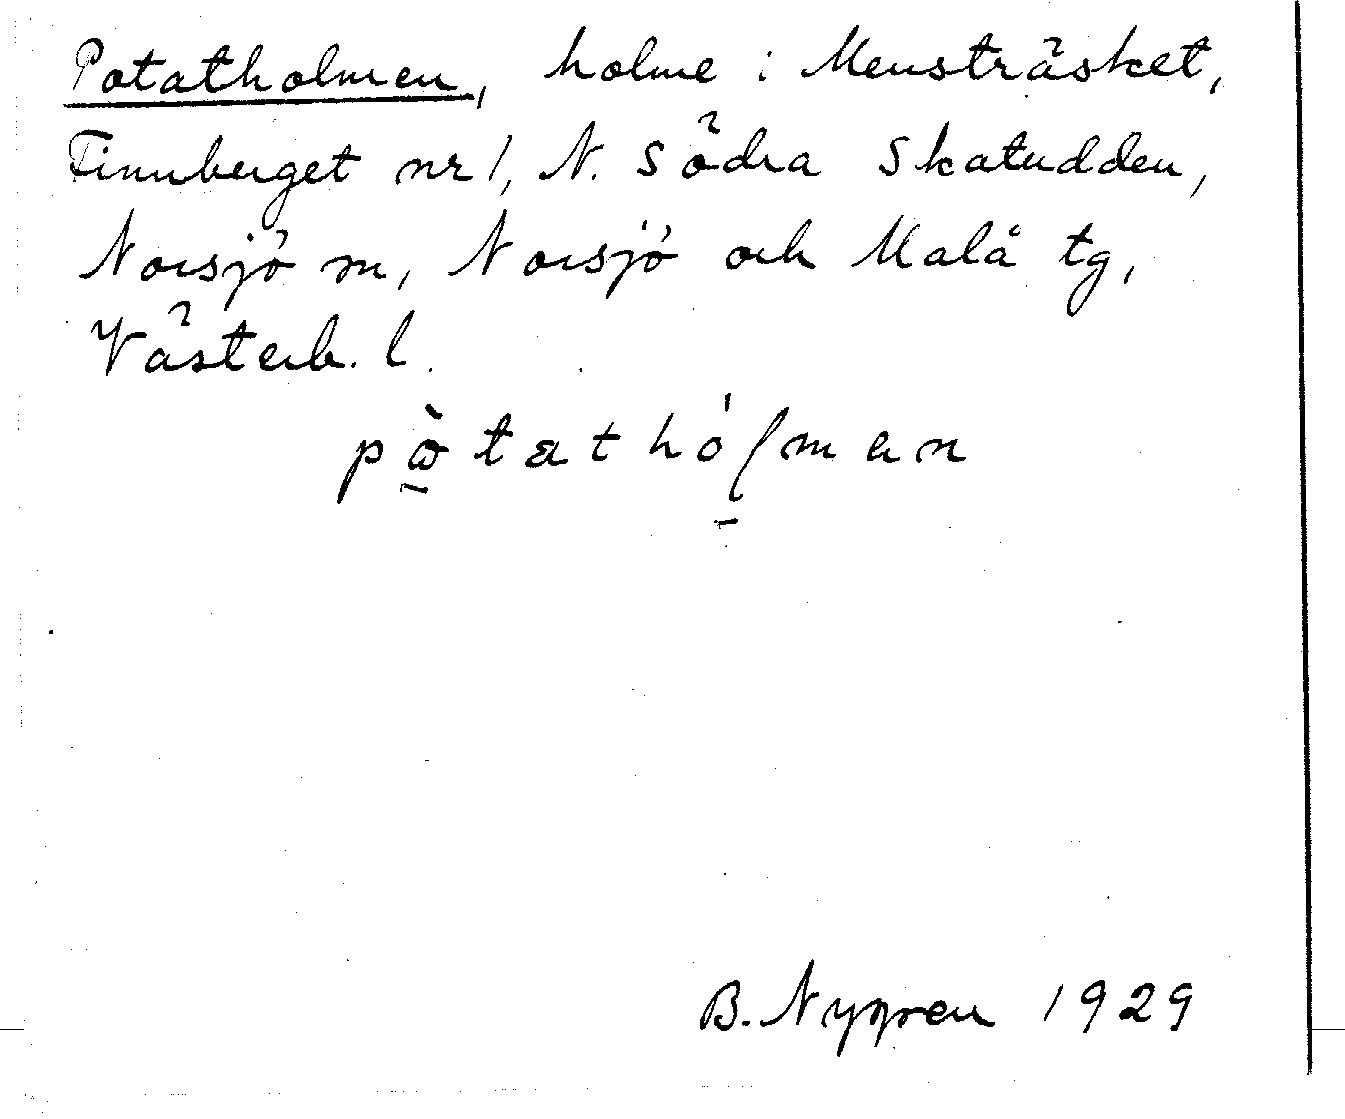 Potatholmen, holme i Mensträsket,
Finnberget nr 1, N. Södra Skatudden,
Norsjö sn, Norsjö och Malå tg,
Västerb. l.
pòtathólman
B. Nygren 1929